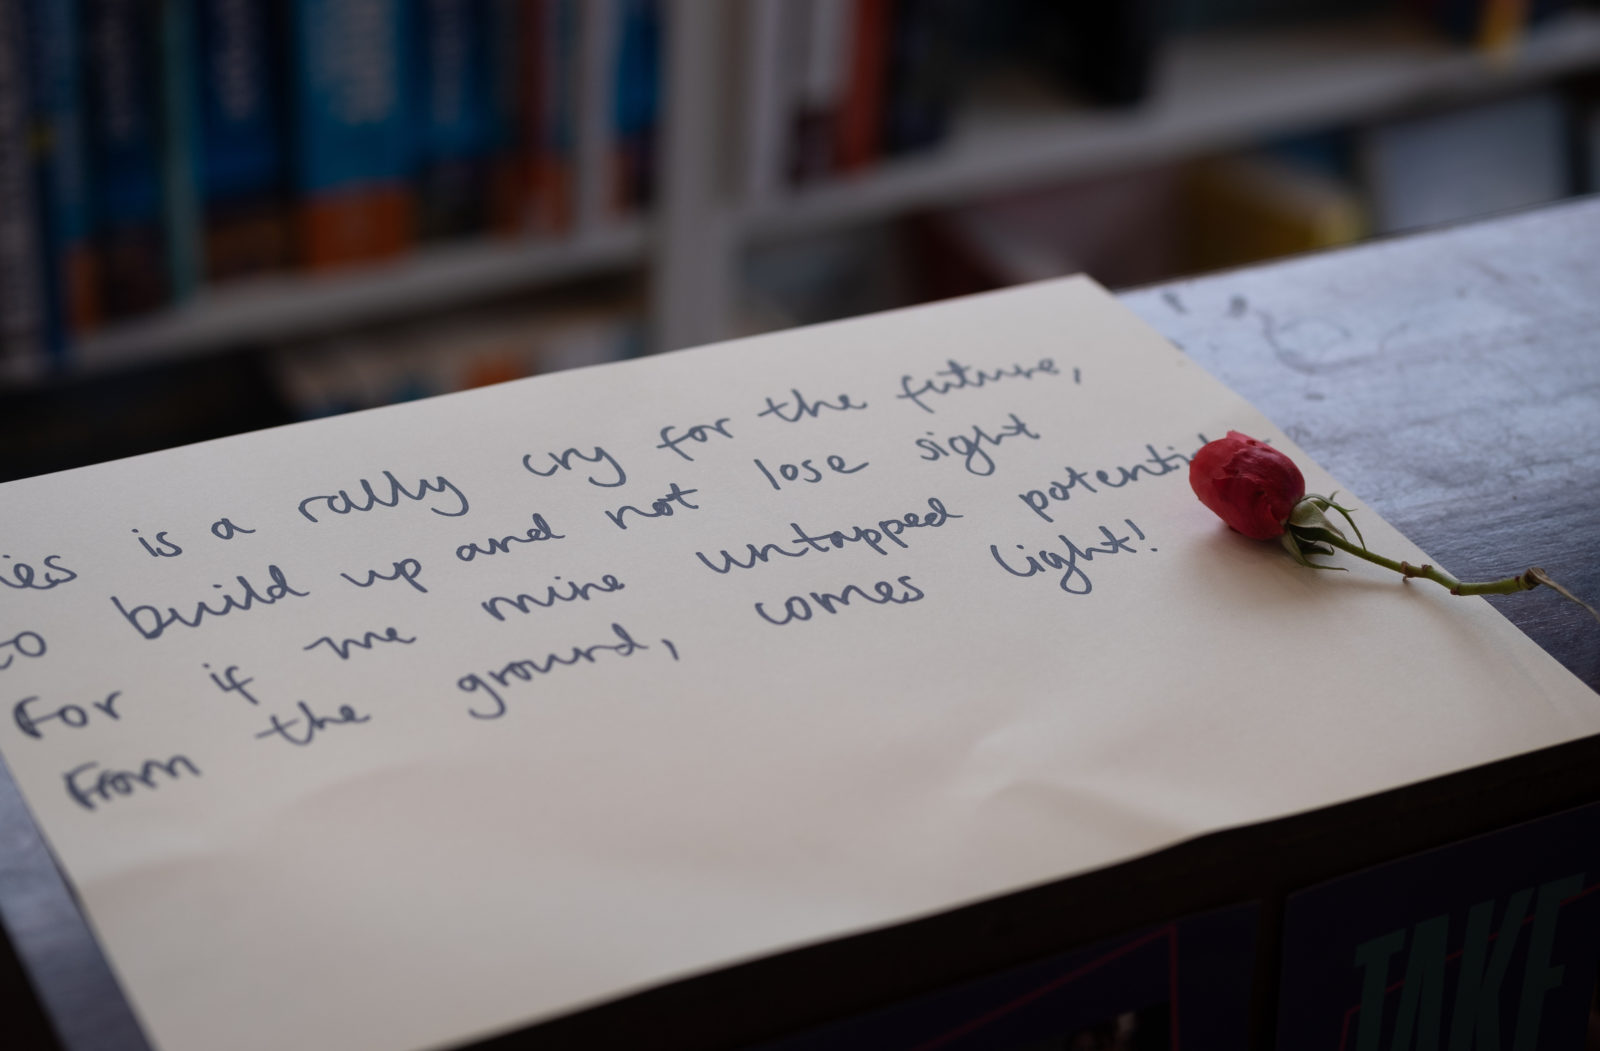 ies is a rally cry for the future,
to build up and not lose sight
For if we mine untapped potential
From the ground, comes light!
TAKE